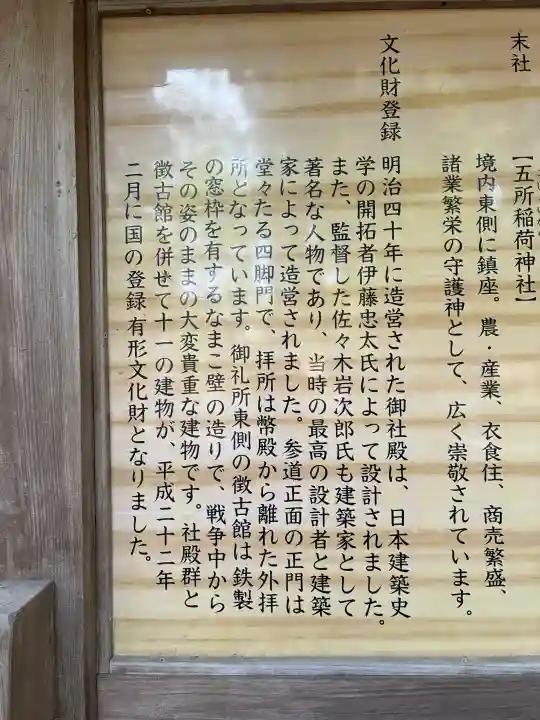 末社
【五所稲荷神社】
境内東側に鎮座。農・産業、衣食住、商売繁盛、
諸業繁栄の守護神として、広く崇敬されています。
文化財登録
明治四十年に造営された御社殿は、日本建築史
学の開拓者伊藤忠太氏によって設計されました。
また、監督した佐々木岩次郎氏も建築家として
著名な人物であり、当時の最高の設計者と建築
家によって造営されました。参道正面の正門は
堂々たる四脚門で、拝所は幣殿から離れた外拝
所となっています。御礼所東側の徴古館は鉄製
の窓枠を有するなまこ壁の造りで、戦争中から
その姿のままの大変貴重な建物です。社殿群と
徴古館を併せて十一の建物が、平成二十二年
二月に国の登録有形文化財となりました。